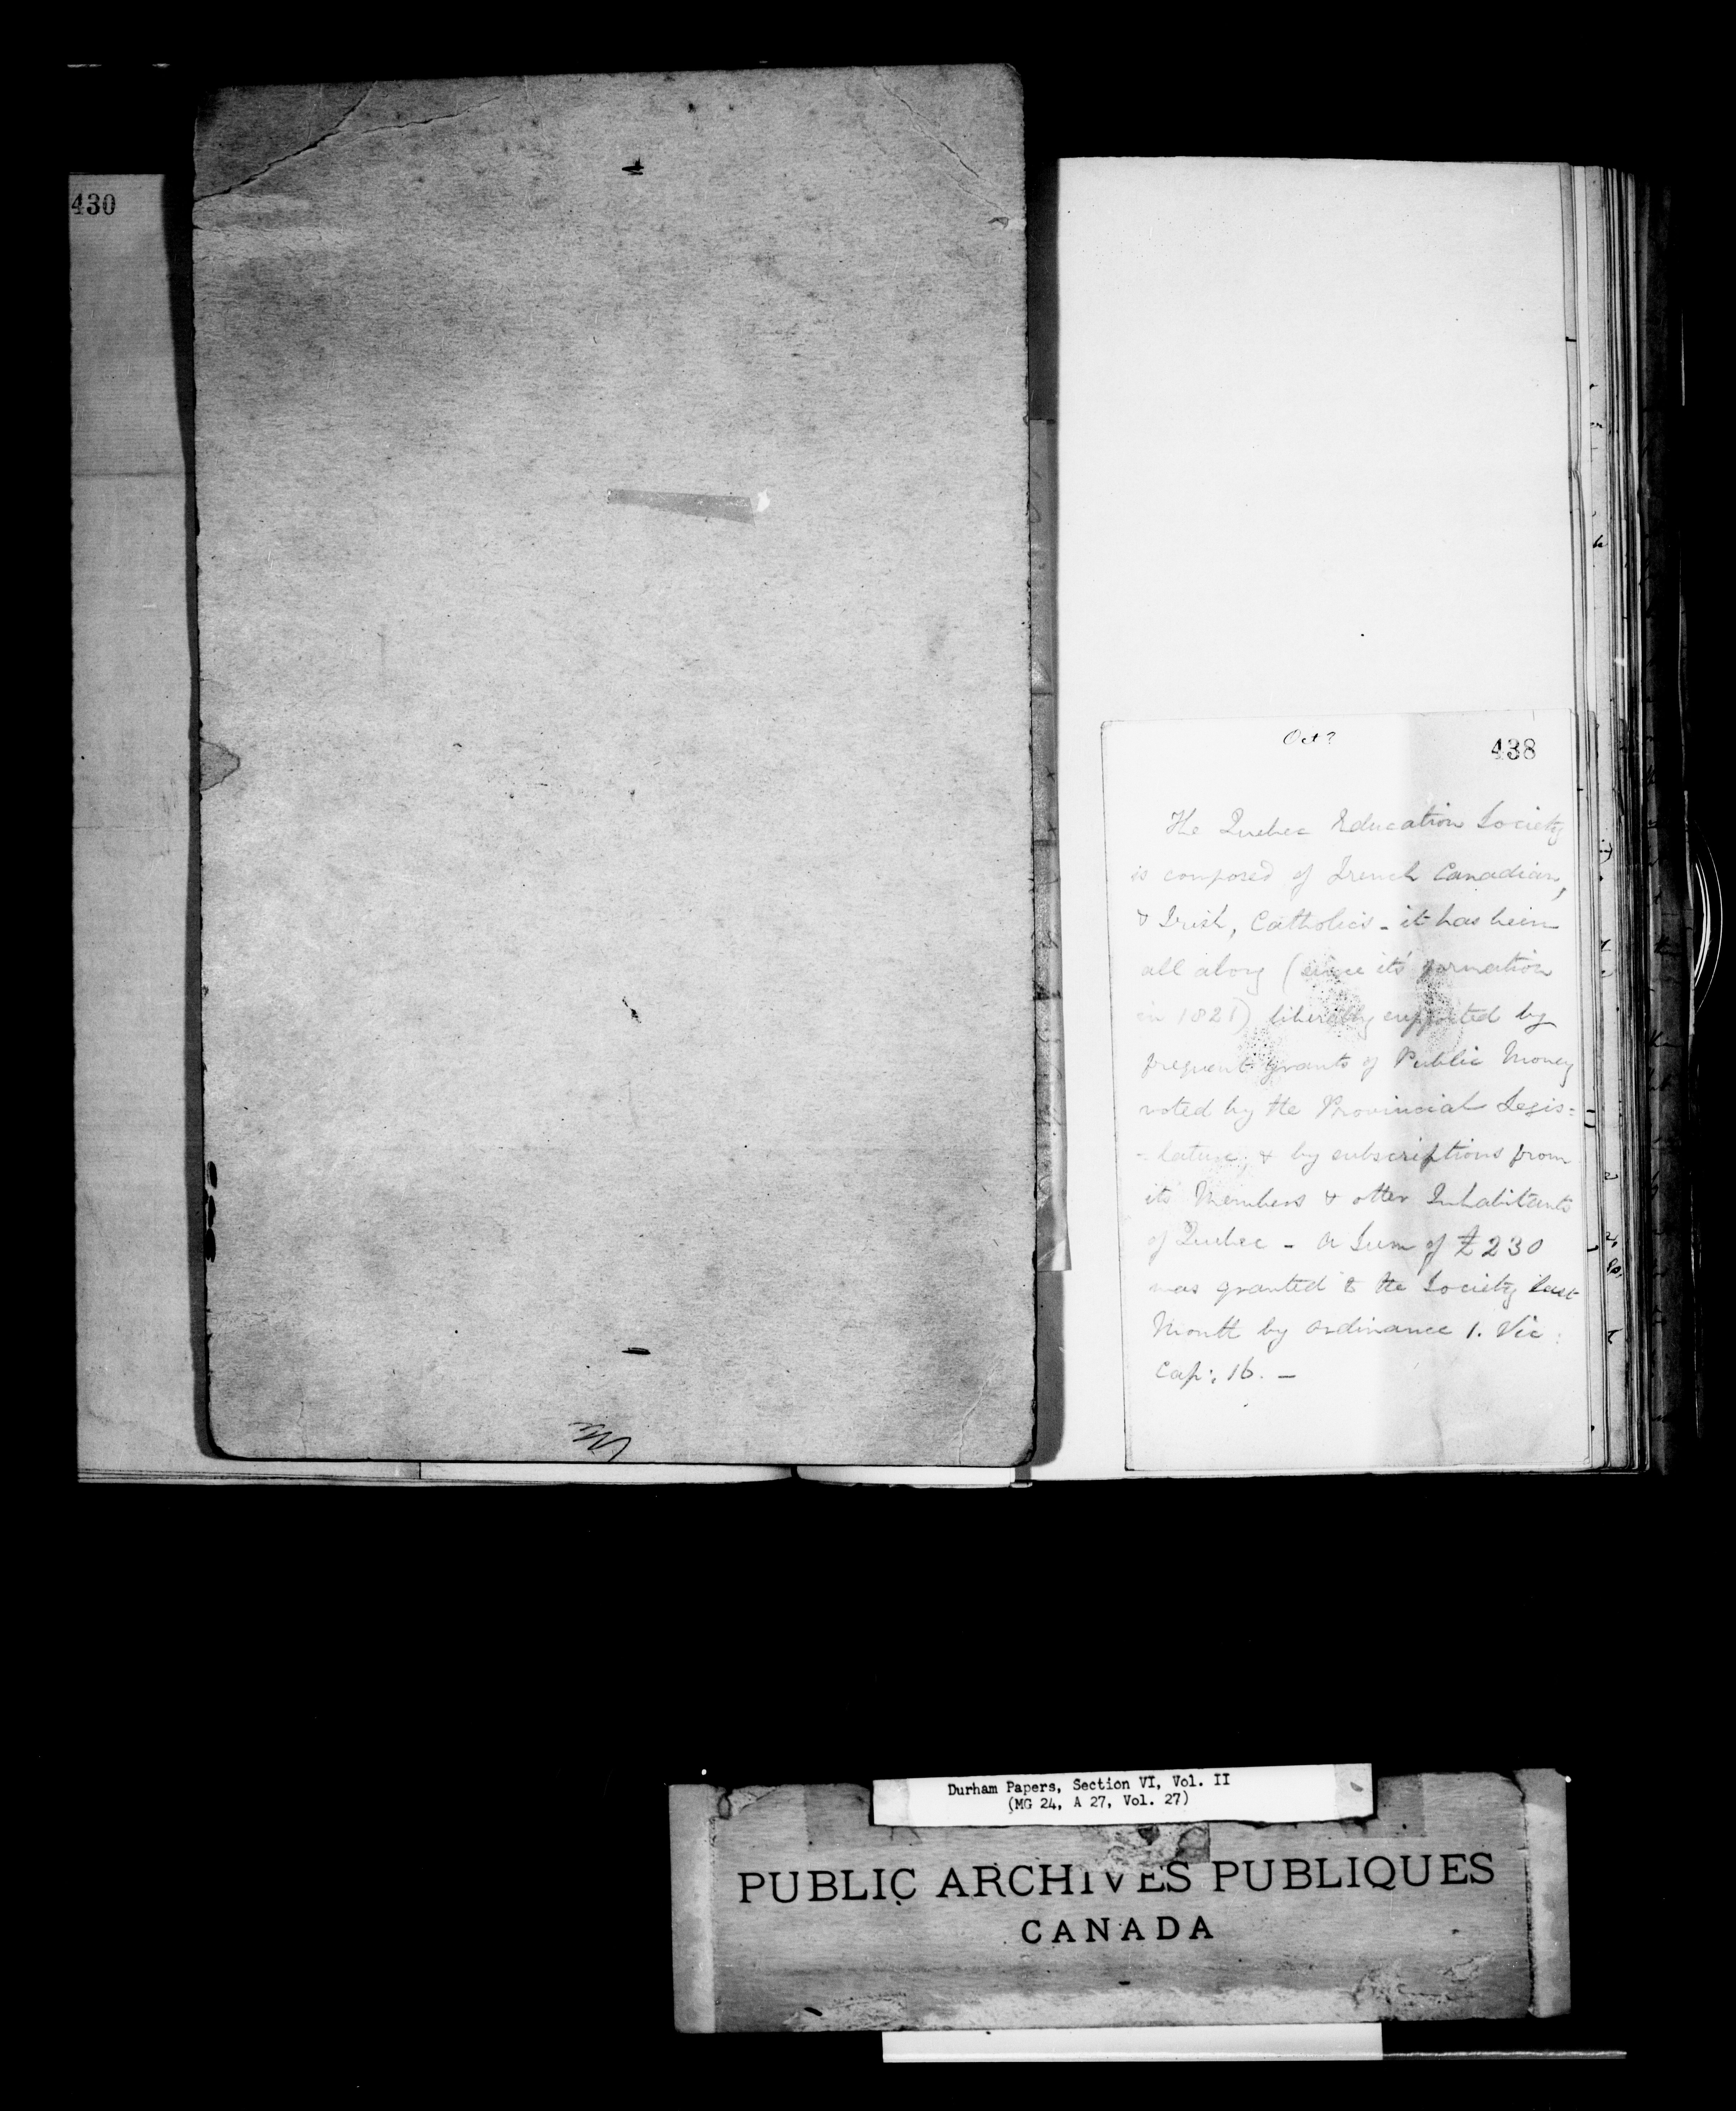 430
Oct?
438
The Quebec Education Society
is composed of French Canadian,
& Irish, Catholics - it has been
all along (since its formation
in 1821) liberally supported by
frequent grants of Public Money
voted by the Provincial Legis=
-lature, & by subscriptions from
its Members & other Inhabitants
of Quebec - A Sum of £230
was granted to the Society last
Month by Ordinance 1. Vic:
Cap: 16. -
Durham Papers, Section VI, Vol. II
(MG 24, A 27, Vol. 27)
PUBLIC ARCHIVES PUBLIQUES
CANADA